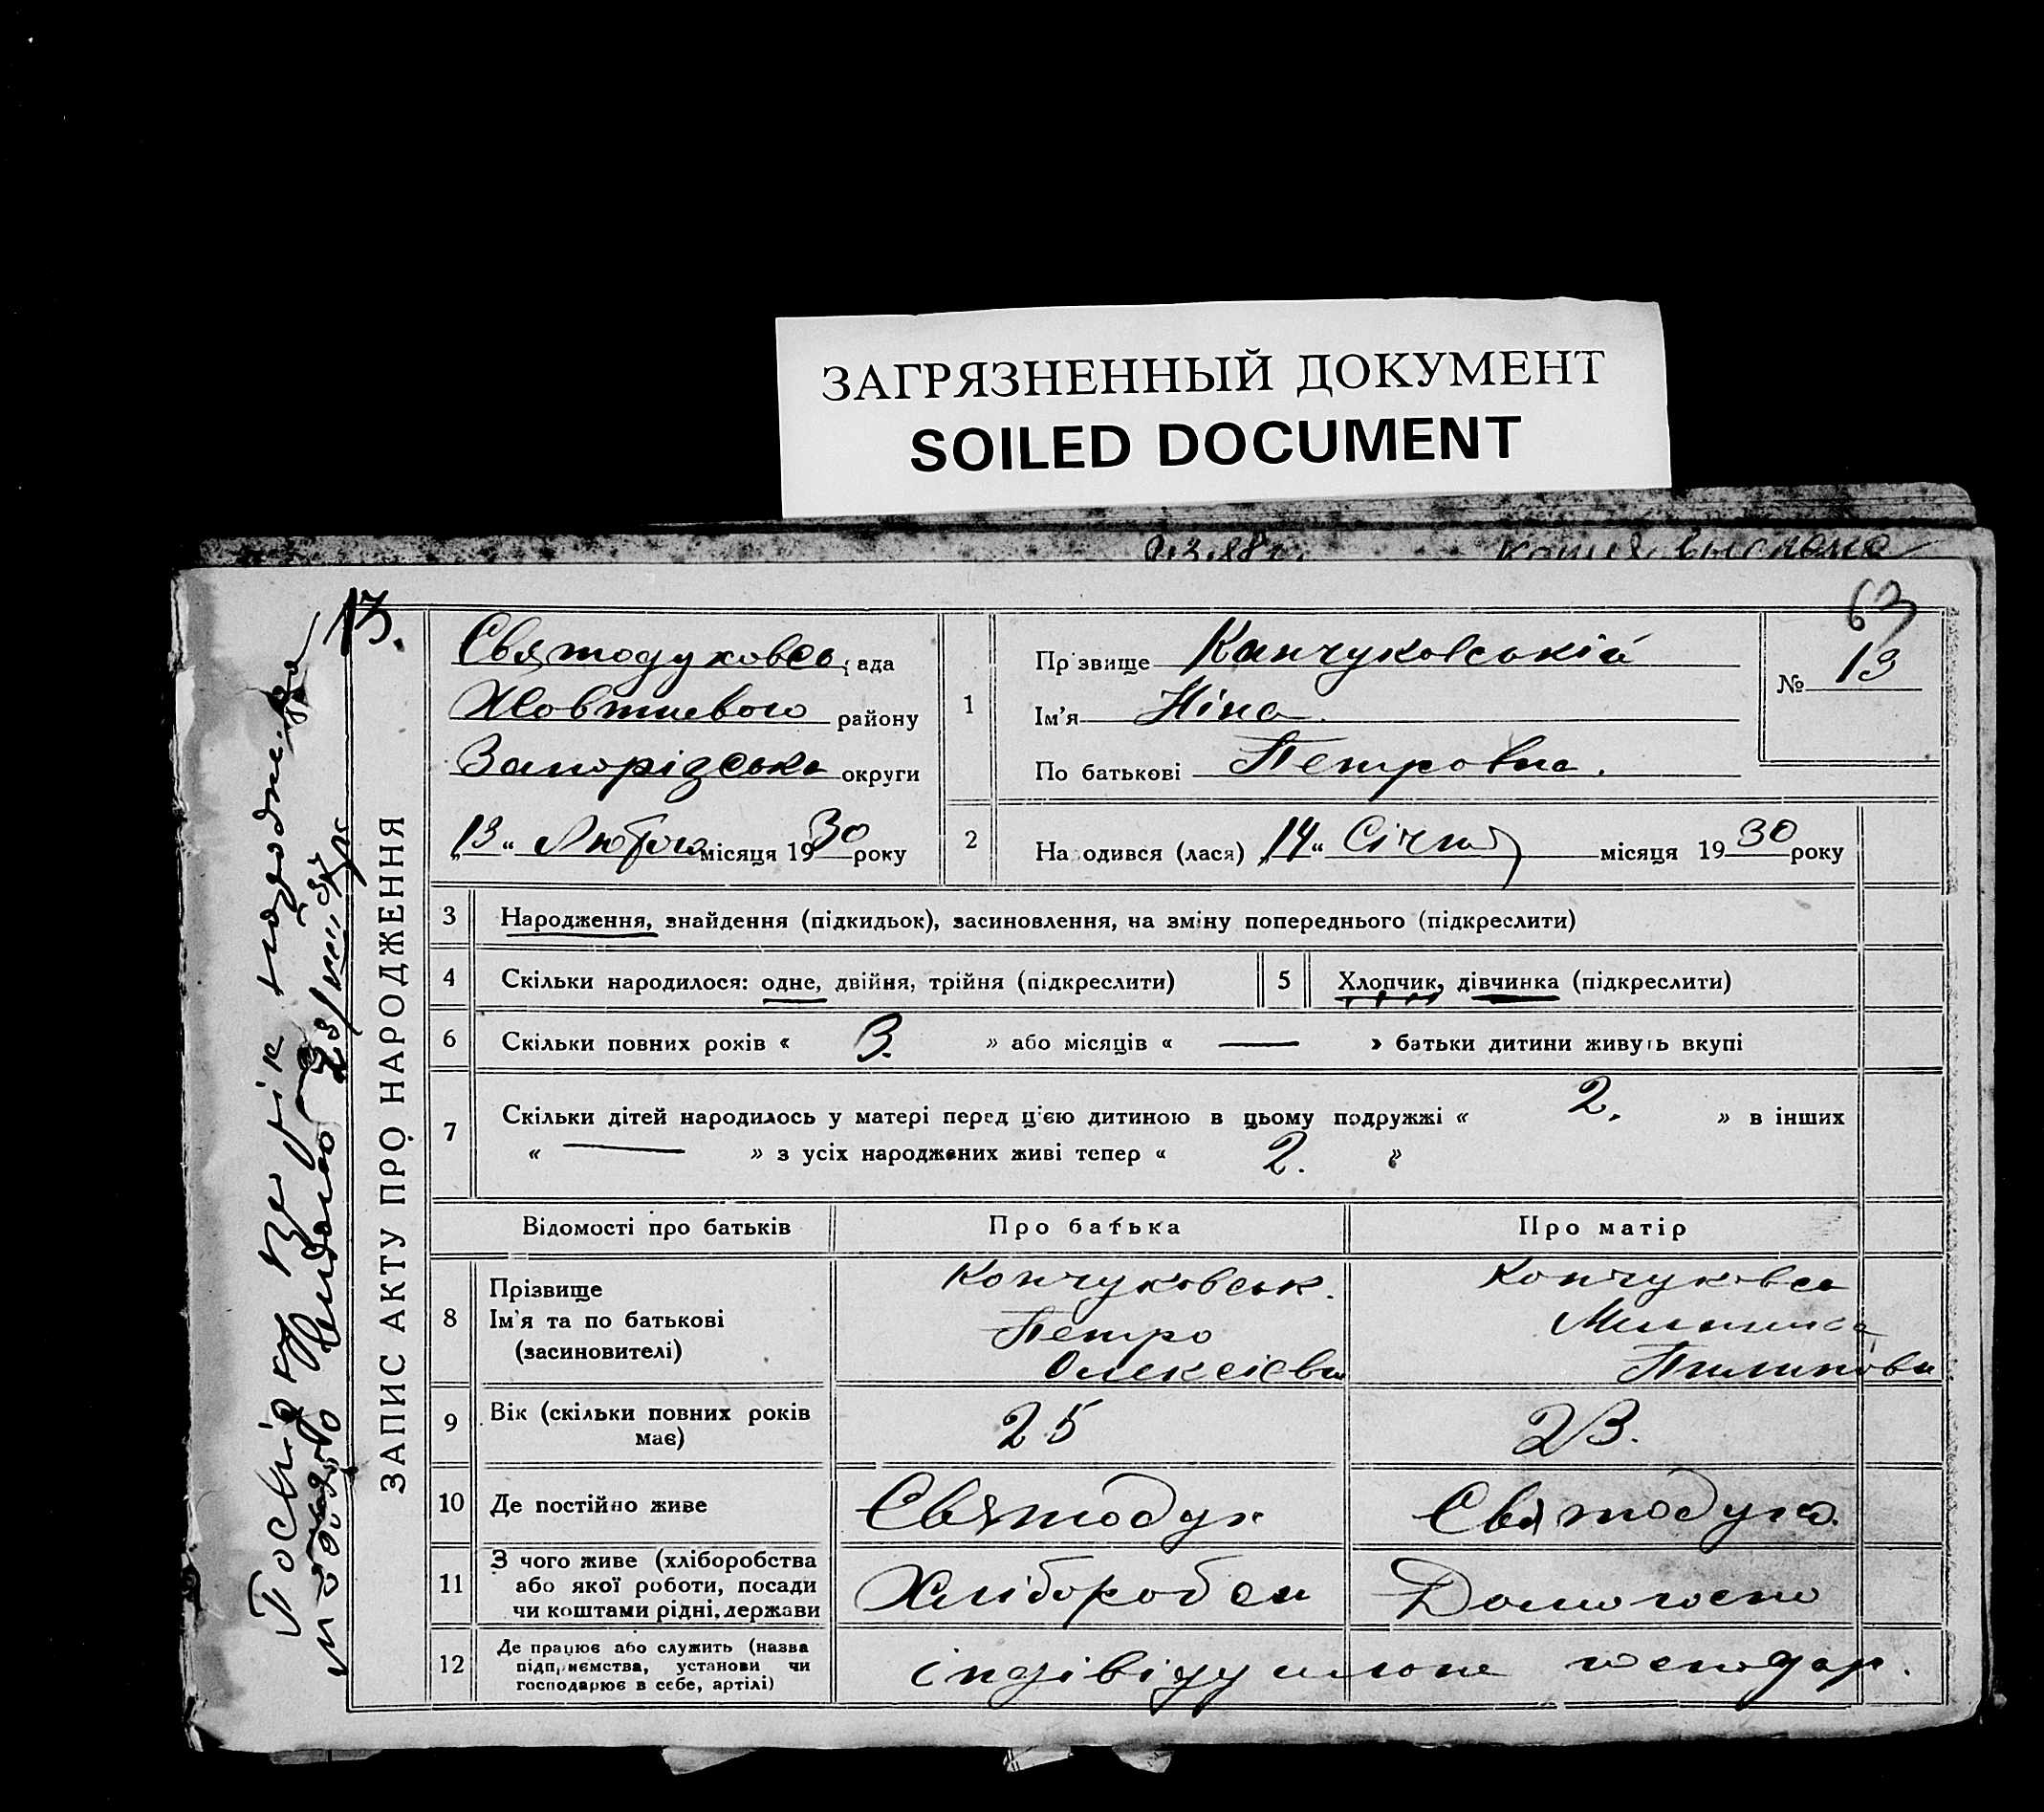 ЗАГРЯЗНЕННЫЙ ДОКУМЕНТ
SOILED DOCUMENT
63
13.
ЗАПИС АКТУ ПРО НАРОДЖЕННЯ
Святодуховсь рада
Жовтневого району
Запорізська округи
„13“ Лютого місяця 1930 року
1
Прізвище Канчуковській
Ім’я Ніна
По батькові Петровна.
№ 13
2 Народився (лася) „14“ Січня місяця 1930 року
3 Народження, знайдення (підкидьок), засиновлення, на зміну попереднього (підкреслити)
4 Скільки народилося: одне, двійня, трійня (підкреслити) 5 Хлопчик, дівчинка (підкреслити)
6 Скільки повних років « 3. » або місяців « — » батьки дитини живуть вкупі
7 Скільки дітей народилось у матері перед цією дитиною в цьому подружжі « 2. » в інших
« — » з усіх народжених живі тепер « 2. »
Відомості про батьків Про батька Про матір
8 Прізвище Кончуковськ. Кончуковсь
Ім’я та по батькові Петро
(засиновителі) Олексієви Пилипови
9 Вік (скільки повних років має) 25 23.
10 Де постійно живе Святодух Святодухо.
11 З чого живе (хліборобства
або якої роботи, посади Хлібороб
чи коштами рідні, держави
12 Де працює або служить (назва
підприємства, установи чи індівідуальне господар.
господарює в себе, артілі)